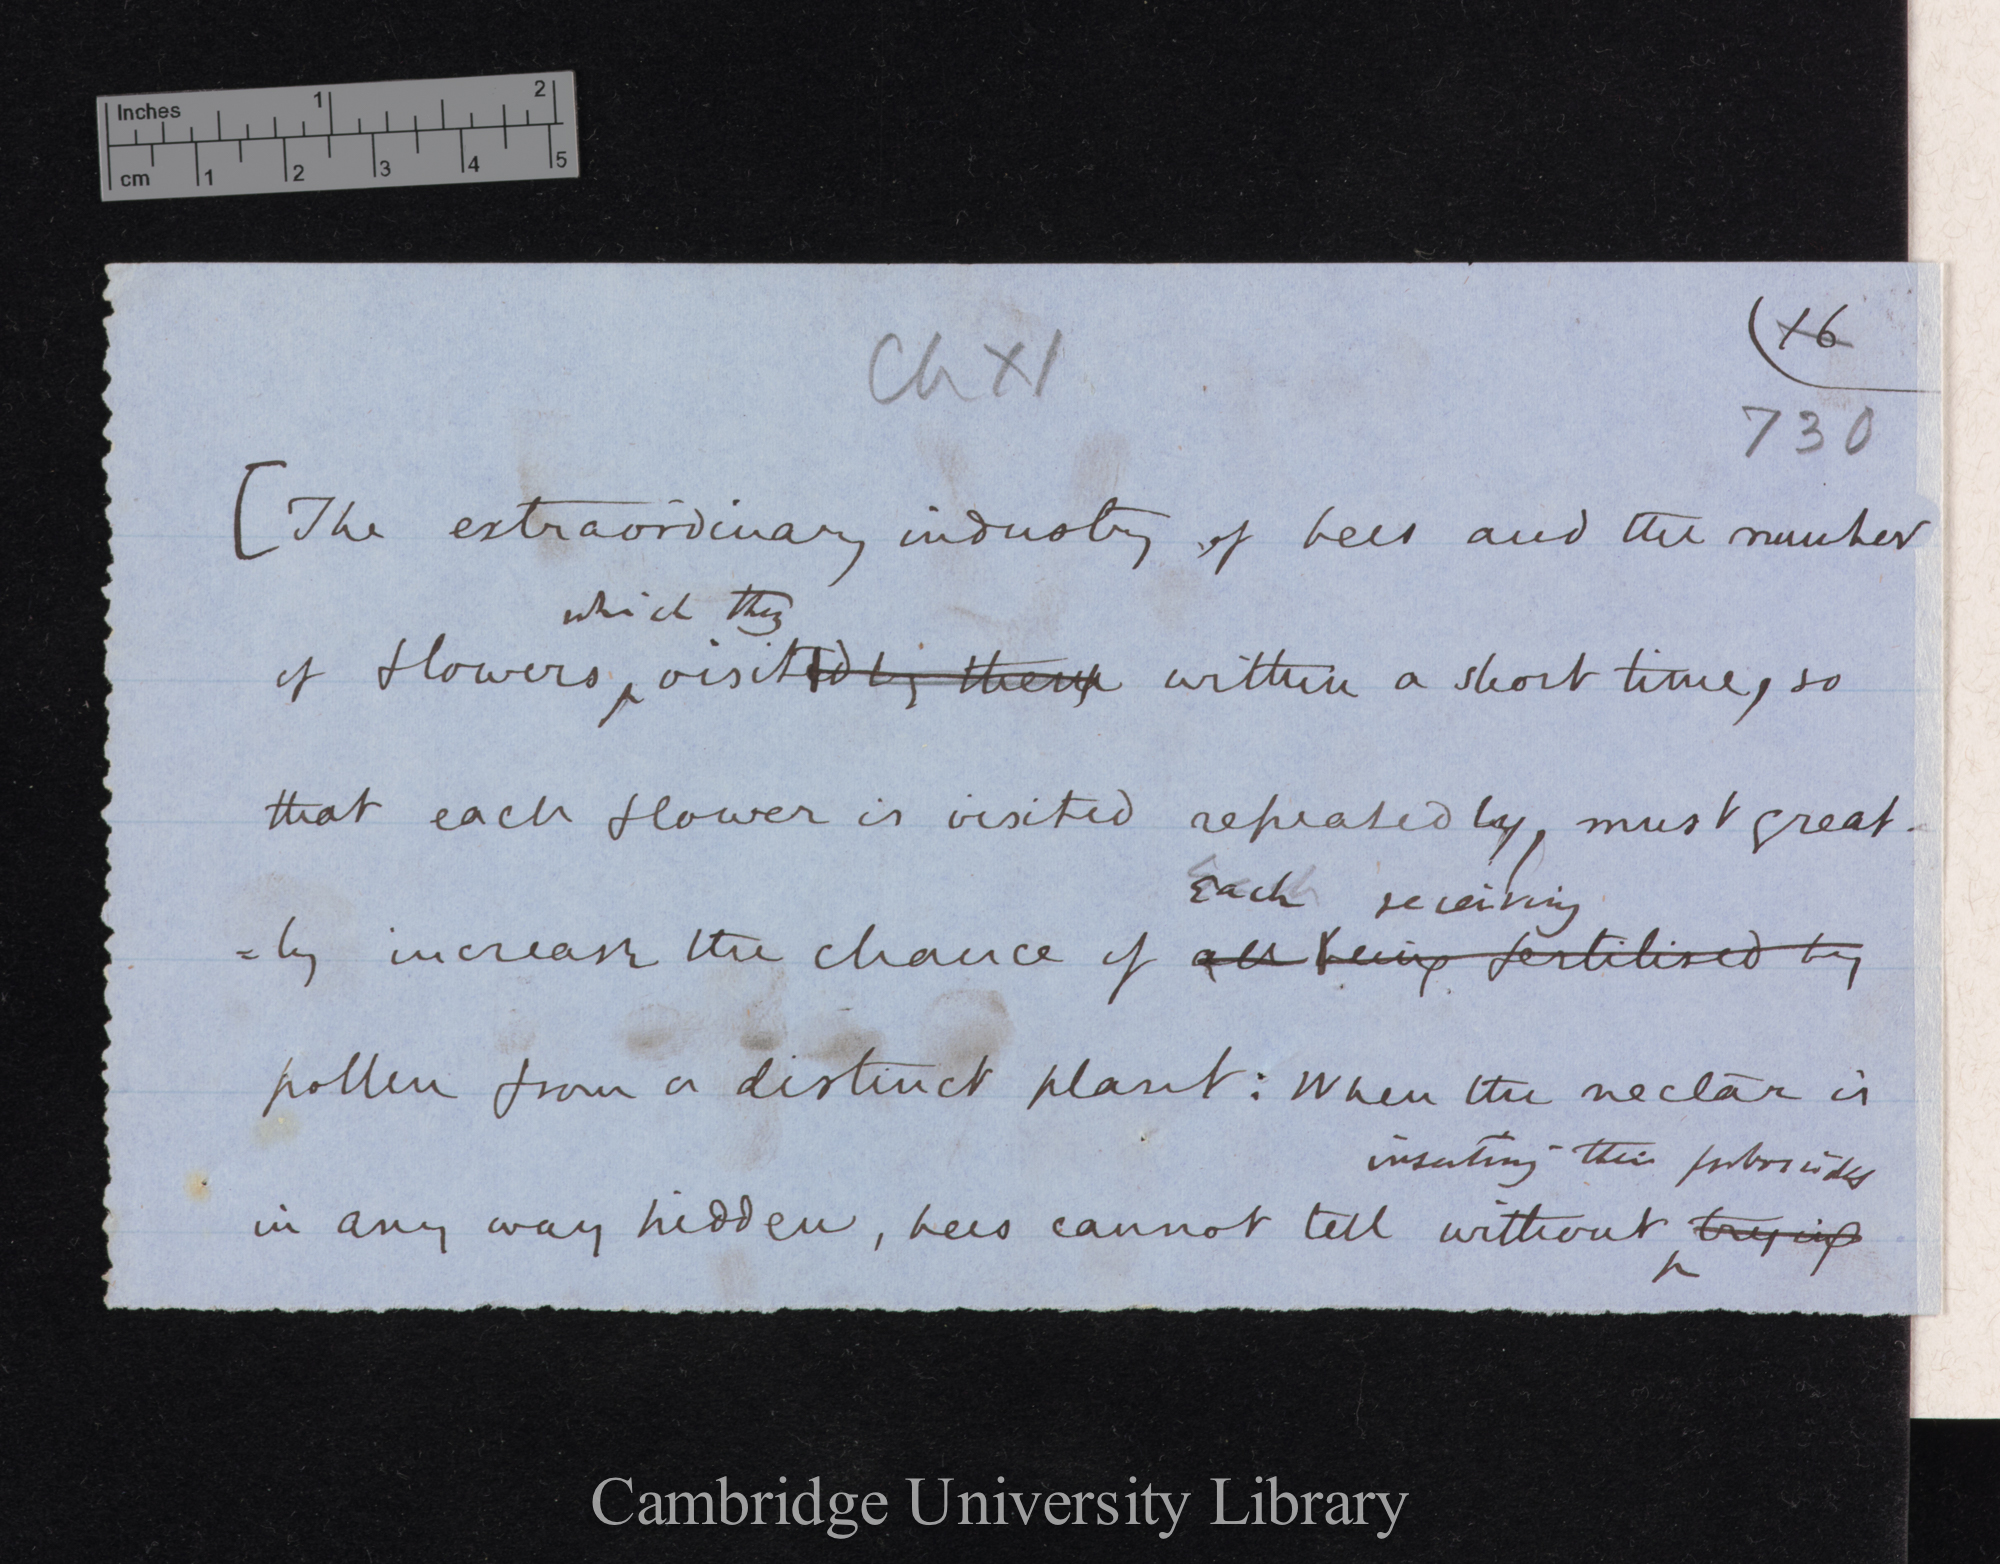 Inches 1 2
cm 1 2 3 4 5
(16
Ch XI
730
[The extraordinary industry of bees and the number
which they
of flowers, visited by them within a short time, so
that each flower is visited repeatedly, must great-
each receiving
=ly increase the chance of all being fertilised by
pollen from a distinct plant: When the nectar is
inserting their proboscides
in any way hidden, bees cannot tell without trying
Cambridge University Library